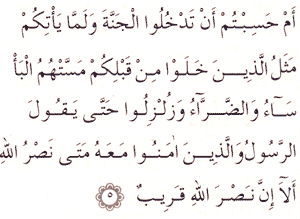 أَمْ حَسِبْتُمْ أَنْ تَدْخُلُوا الْجَنَّةَ وَلَمَّا يَأْتِكُمْ
مَثَلُ الَّذِينَ خَلَوْا مِنْ قَبْلِكُمْ مَسَّتْهُمُ الْبَأْ
سَاءُ وَالضَّرَّاءُ وَزُلْزِلُوا حَتَّى يَقُولَ
الرَّسُولُ وَالَّذِينَ اٰمَنُوا مَعَهُ مَتَى نَصْرُ اللهِ
أَلَا إِنَّ نَصْرَ اللهِ قَرِيبٌ ٥